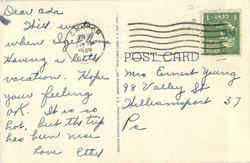 Dear Ada
Will
when I
Having a little
vacation. Hope
your feeling
OK. It is so
hot. But the trip
has been nice
Love
POST CARD
1 CENT 1
Mrs Ernest Young
98 Valley St
Williamsport
Pa